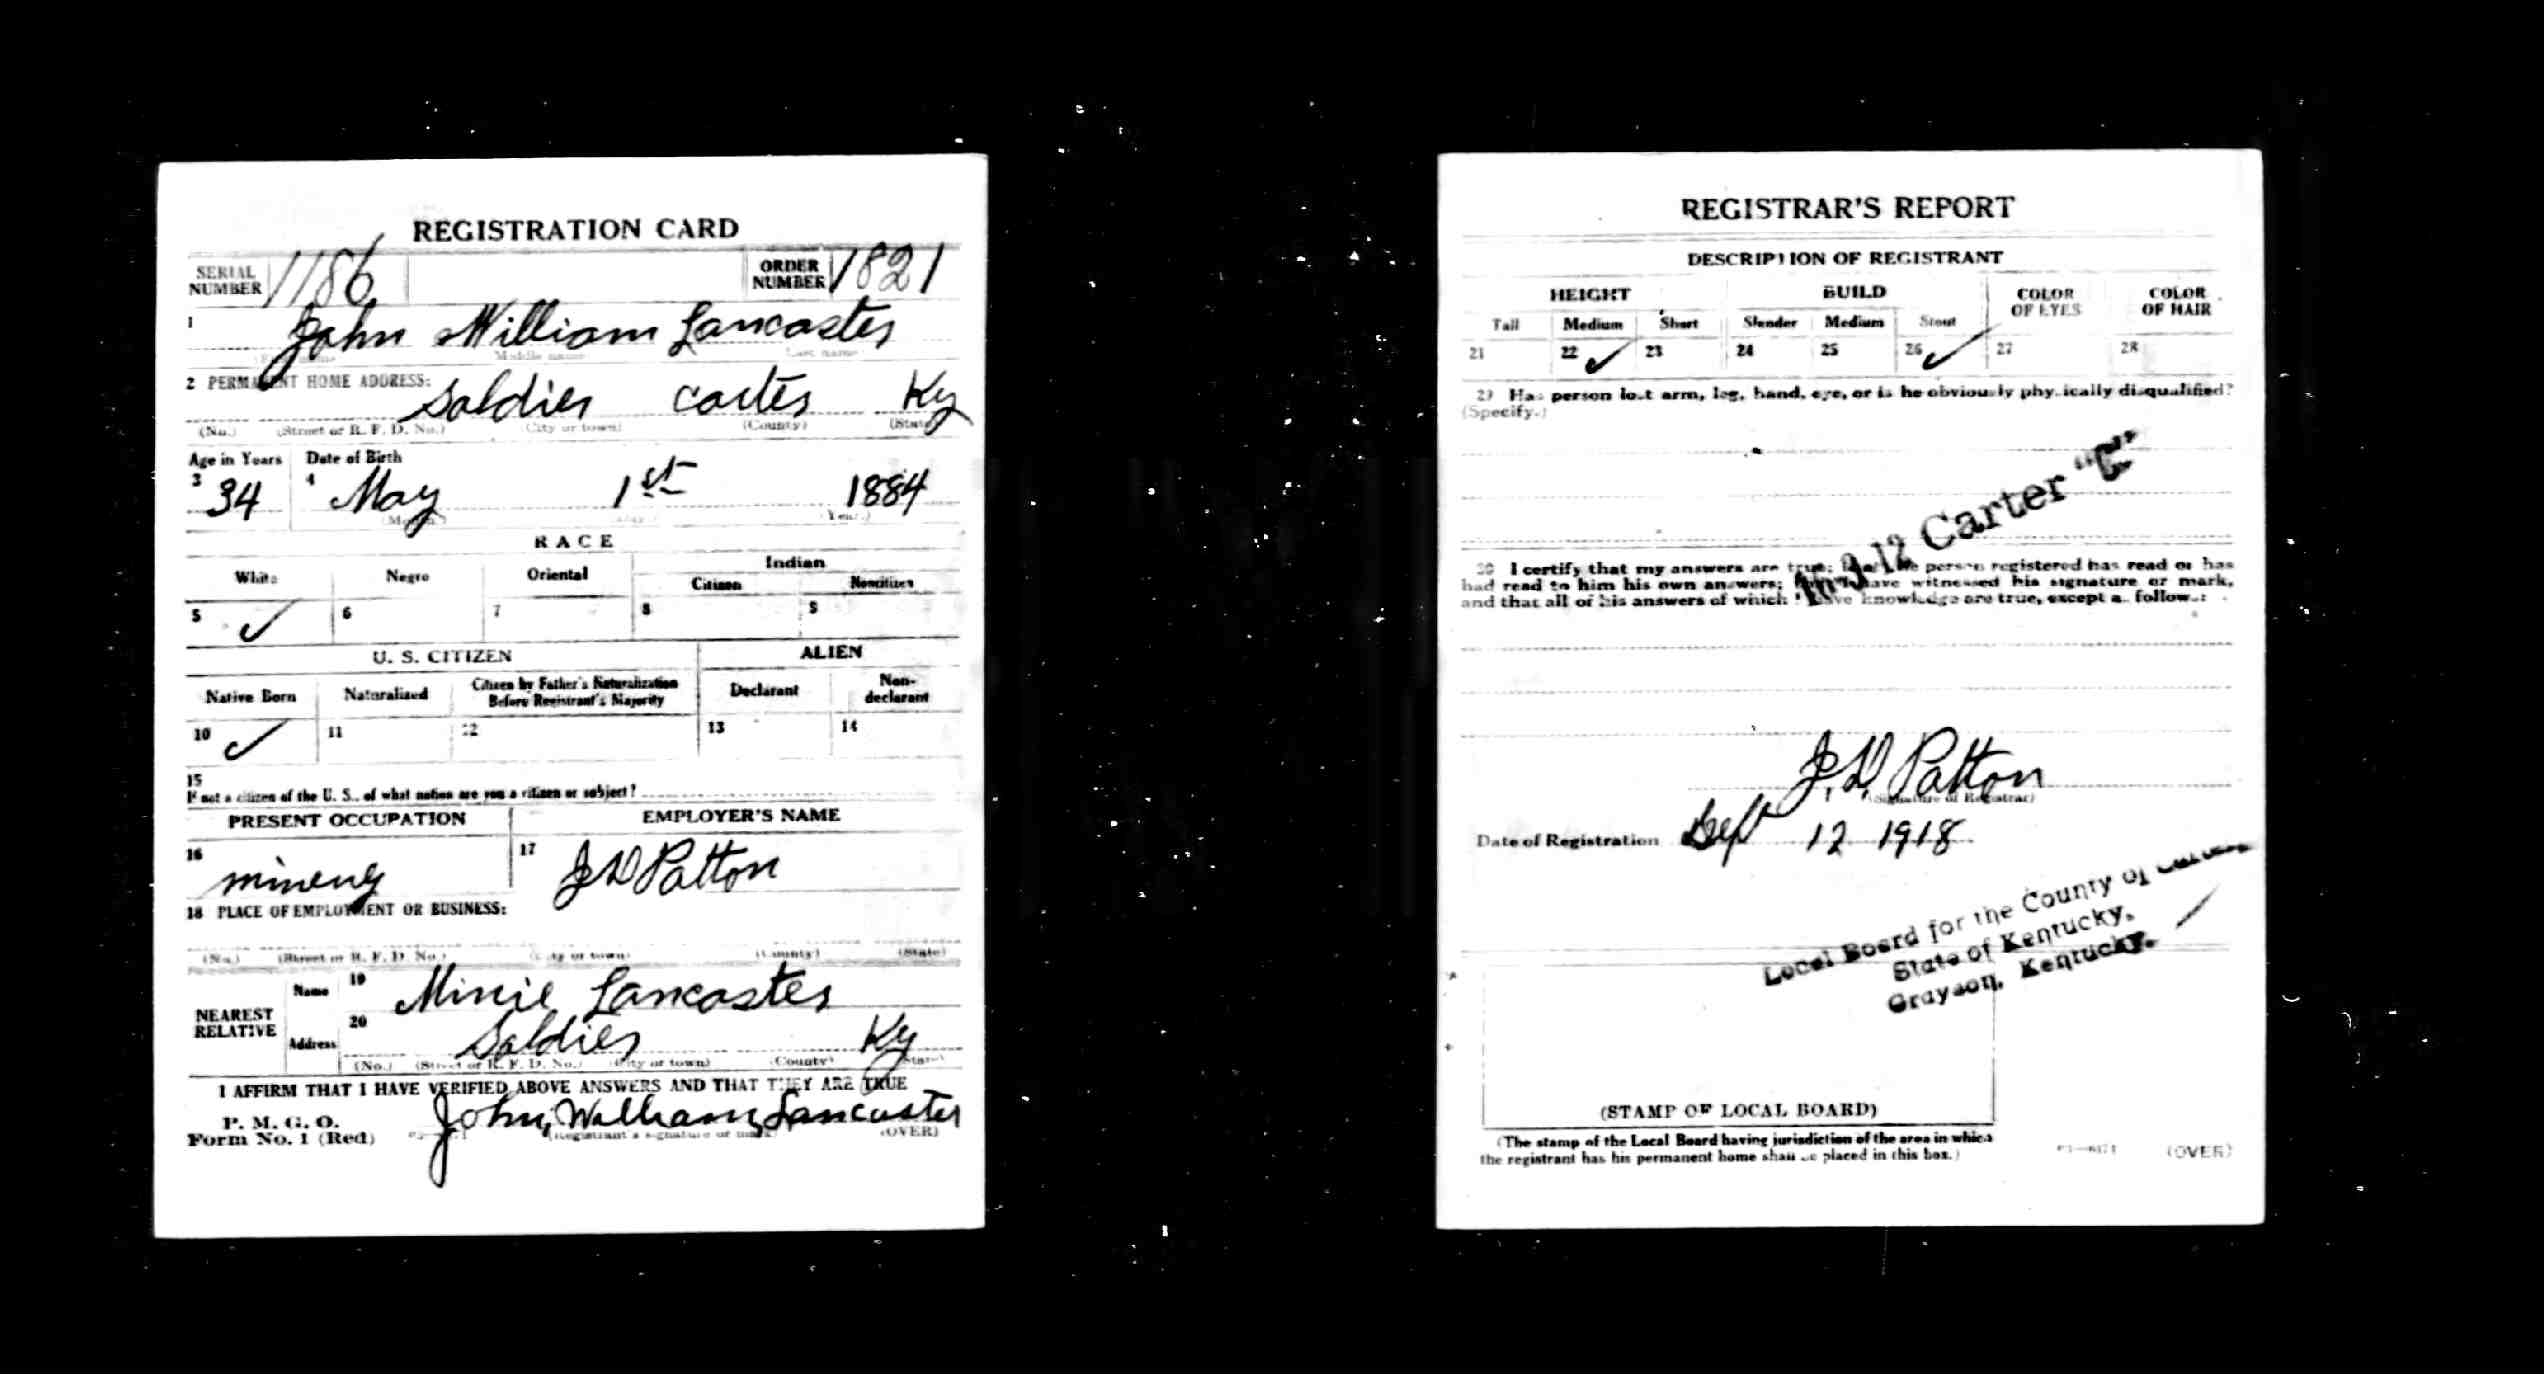 REGISTRATION CARD
SERIAL NUMBER 1186 ORDER NUMBER 1821
1 John William Lancaster
Middle name Last name
2 PERMANENT HOME ADDRESS:
Soldier Carter Ky
(No.) (Street or R. F. D. No.) (City or town) (County) (State)
Age in Years Date of Birth
3 34 4 May 1st 1884
(Month.) (Year.)
RACE
White Negro Oriental Indian
Citizen Noncitizen
5 ✓ 6 7 8 9
U. S. CITIZEN ALIEN
Native Born Naturalized Citizen by Father's Naturalization Before Registrant's Majority Declarant Non-declarant
10 ✓ 11 12 13 14
15
If not a citizen of the U. S., of what nation are you a citizen or subject?
PRESENT OCCUPATION EMPLOYER'S NAME
16 mineng 17 J D Patton
18 PLACE OF EMPLOYMENT OR BUSINESS:
(No.) (Street or R. F. D. No.) (City or town) (County) (State)
NEAREST RELATIVE
Name 19 Minie Lancaster
Address 20 Soldier Ky
(No.) (Street or R. F. D. No.) (City or town) (County) (State)
I AFFIRM THAT I HAVE VERIFIED ABOVE ANSWERS AND THAT THEY ARE TRUE
P. M. G. O.
Form No. 1 (Red) John William Lancaster
(Registrant's signature or mark) (OVER)
REGISTRAR'S REPORT
DESCRIPTION OF REGISTRANT
HEIGHT BUILD COLOR OF EYES COLOR OF HAIR
Tall Medium Short Slender Medium Stout
21 22 ✓ 23 24 25 26 ✓ 27 28
29 Has person lost arm, leg, hand, eye, or is he obviously physically disqualified?
(Specify.)
16-3-12 Carter "C"
30 I certify that my answers are true; that the person registered has read or has
had read to him his own answers; that I have witnessed his signature or mark,
and that all of his answers of which I have knowledge are true, except as follows:
J. D. Patton
(Signature of Registrar)
Date of Registration Sept 12 1918
Local Board for the County of Carter
State of Kentucky,
Grayson, Kentucky.
(STAMP OF LOCAL BOARD)
(The stamp of the Local Board having jurisdiction of the area in which
the registrant has his permanent home shall be placed in this box.)
(OVER)